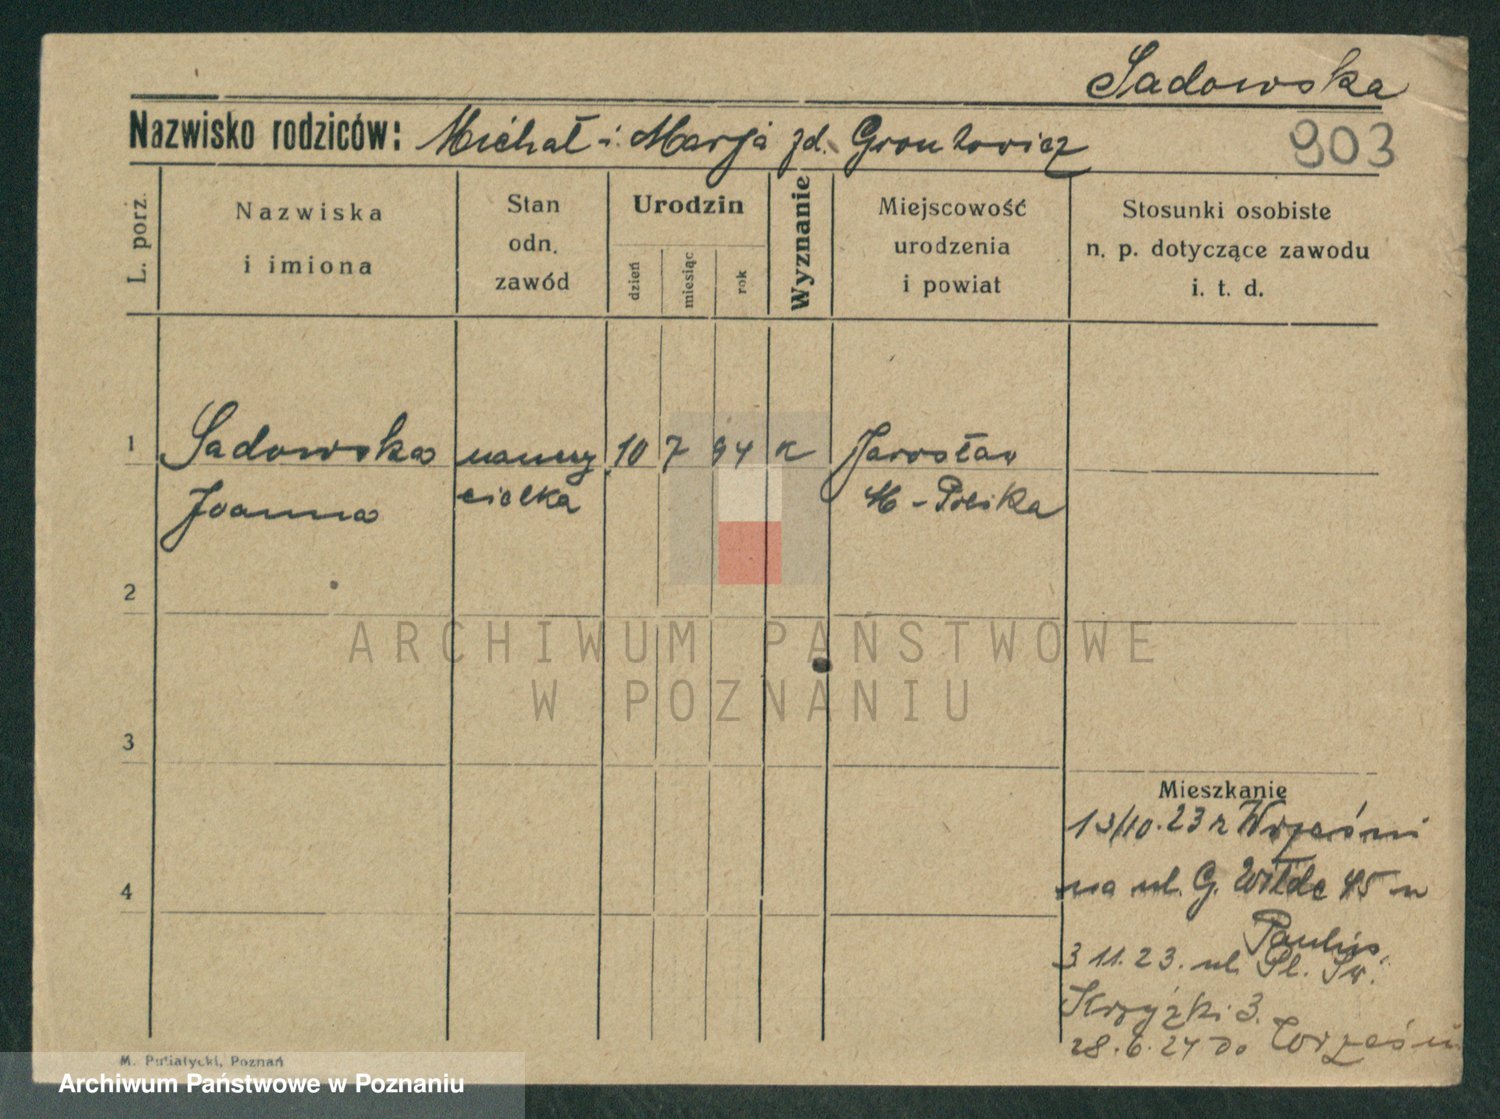 Sadowska
Nazwisko rodziców: Michał i Marja zd.
903
L. porz.
Nazwiska
i imiona
Stan
odn.
zawód
Urodzin
dzień
miesiąc
rok
Wyznanie
Miejscowość
urodzenia
i powiat
Stosunki osobiste
n. p. dotyczące zawodu
i. t. d.
1 Sadowska nauczy 10 7 94 K Jarosław
Joanna cielka M-Polska
2
ARCHIWUM PAŃSTWOWE
W POZNANIU
3
Mieszkanie
13/10.23 z Wrześni
4
na ul. G. Wilde 45 u
3 11.23. ul. Pl. Św.
Krzyżki 3.
28.6.24 do Wrześni
M. Putiatycki, Poznań
Archiwum Państwowe w Poznaniu